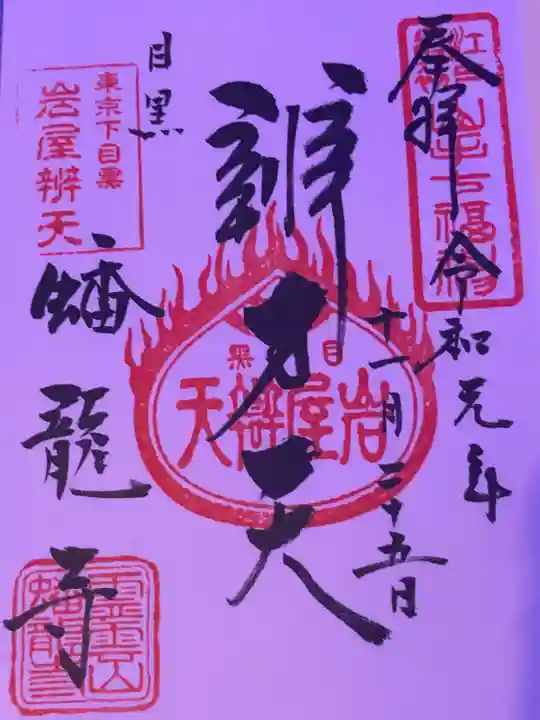 奉拝
令和元年
十一月二十五日
辨才天
目黒
岩屋辨天
目黒
蟠龍寺
東京下目黒
岩屋辨天
霊雲山
蟠龍寺